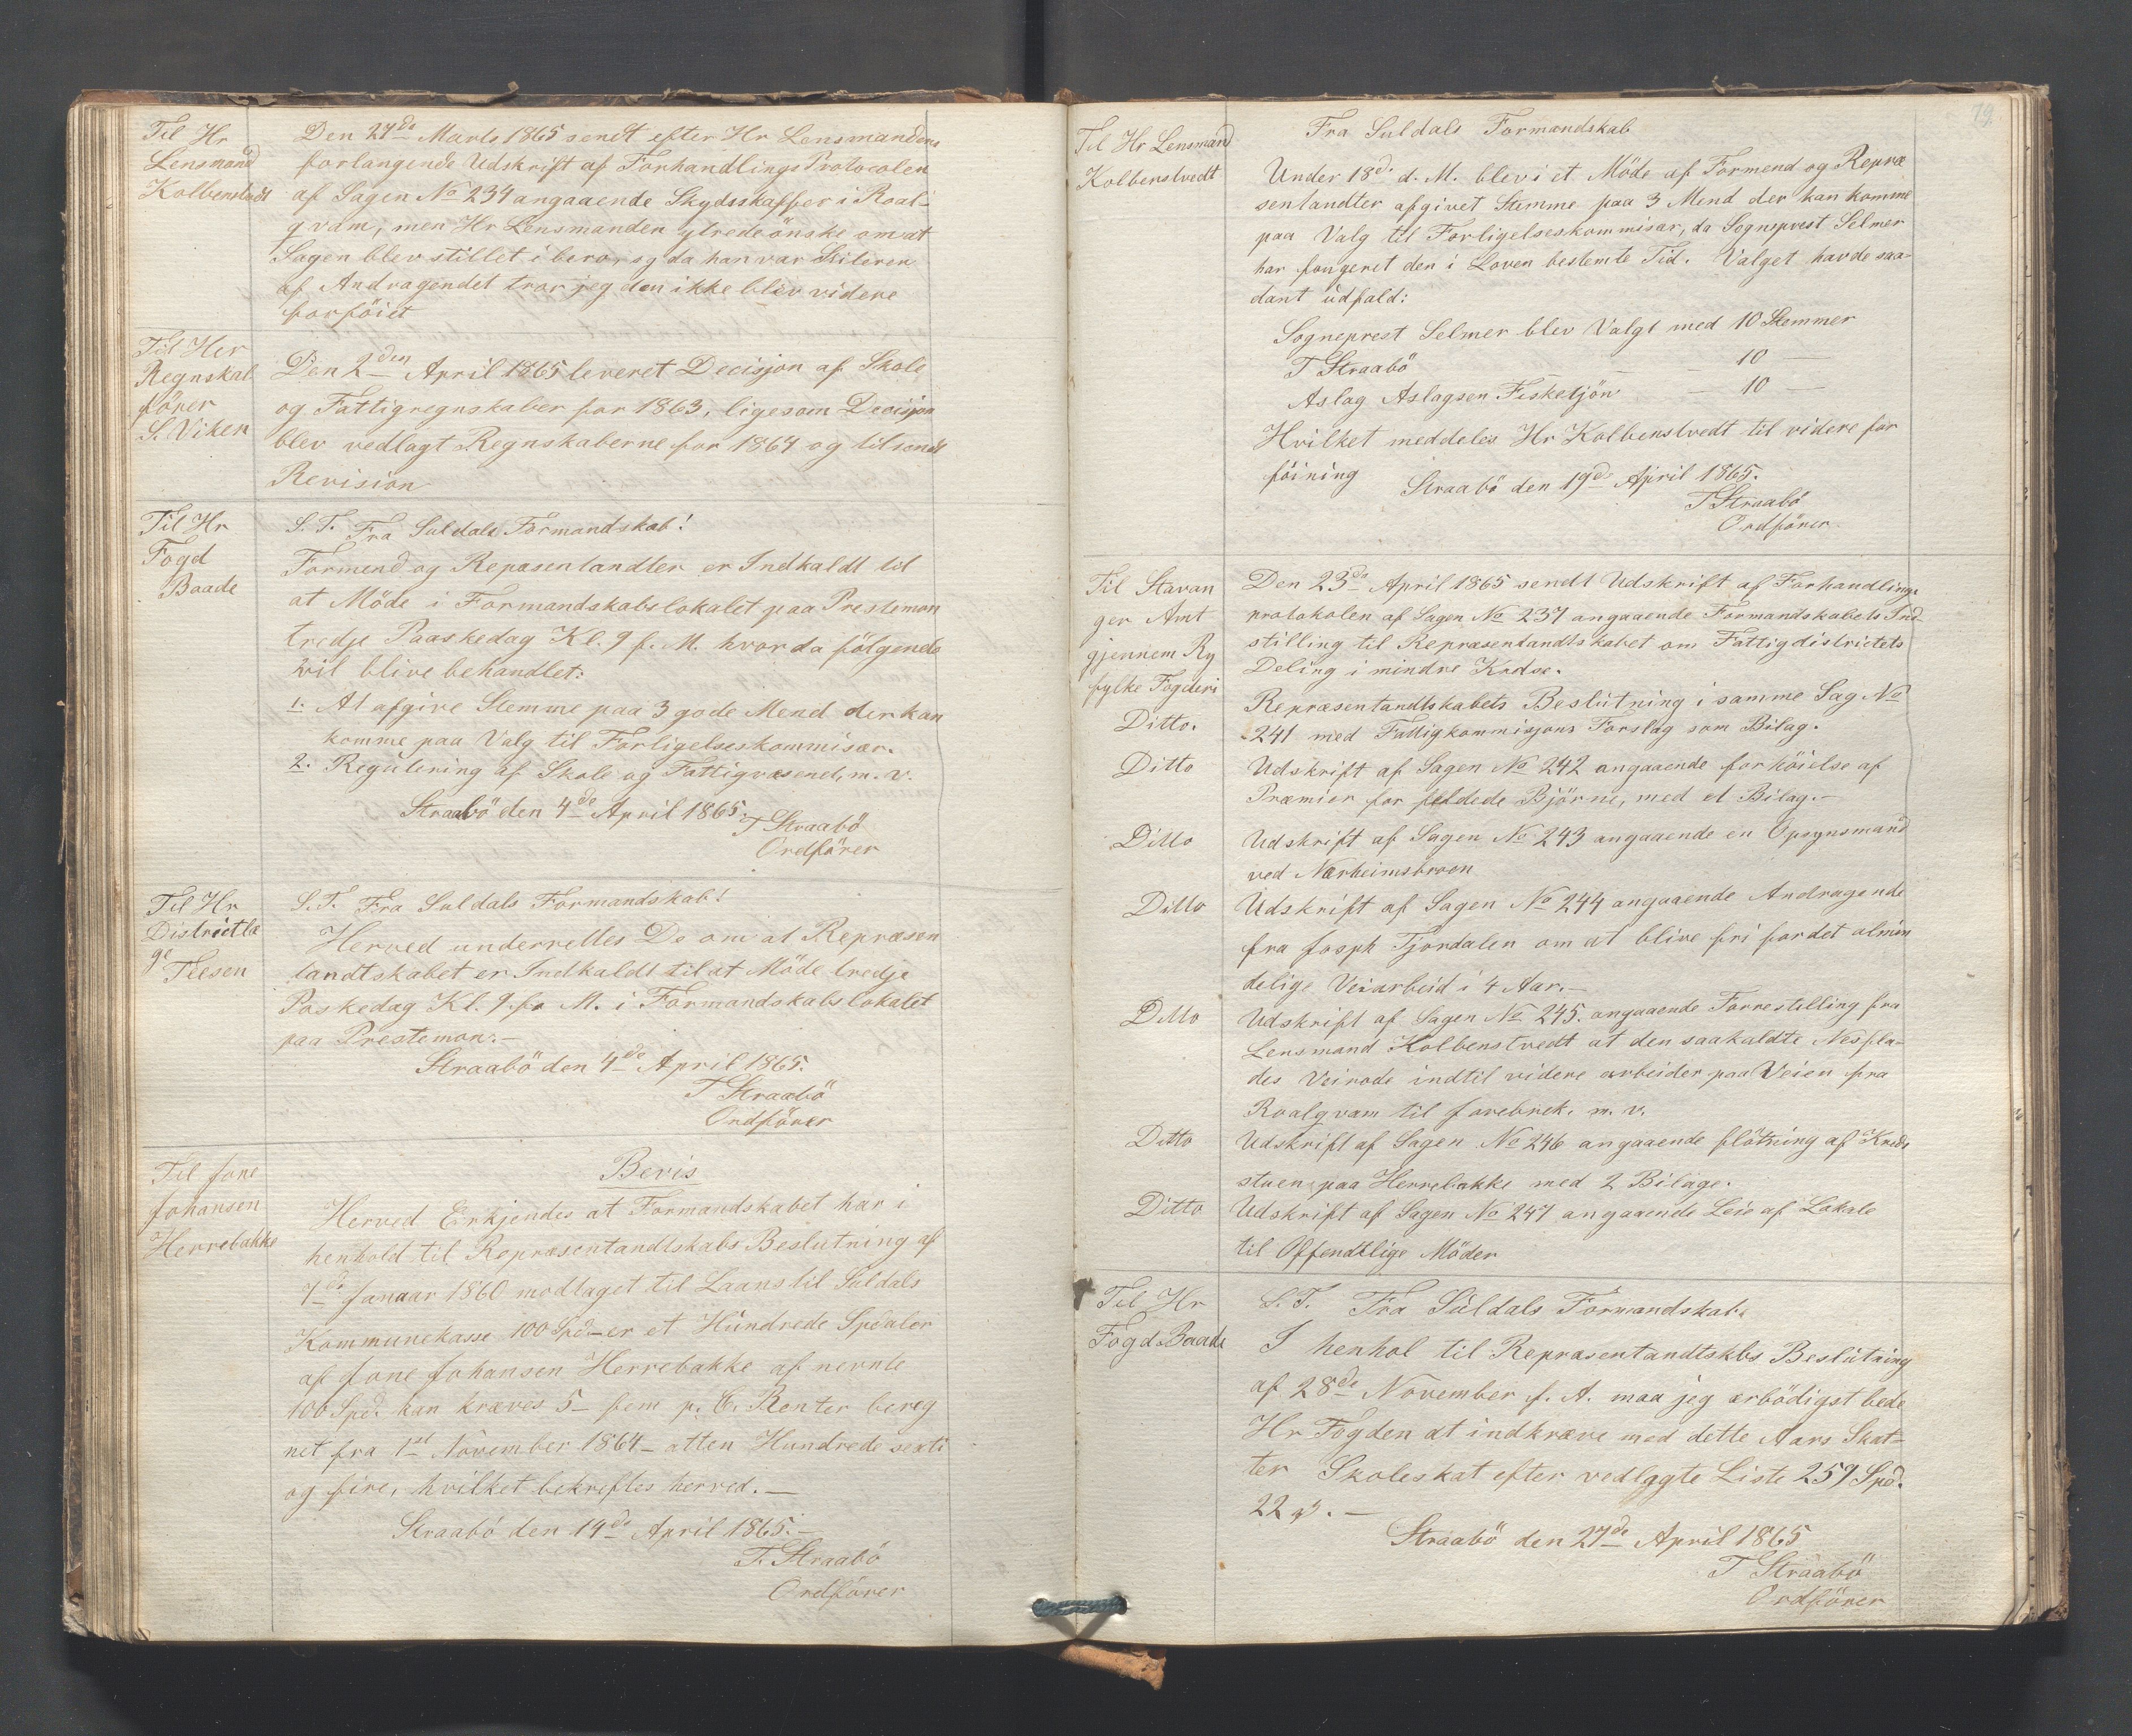 Til Hr
Lensmand
Kolbenstvedt
Den 24de Marts 1865 sendt efter Hr Lensmandens
forlangende Udskrift af Forhandlings Protocolen
af Sagen No 234 angaaende Skydsskaffer i Roal-
qvam, men Hr Lensmanden ytrede önske om at
Sagen blev stillet i bero, og da han var Skileren
af Andragendet tror jeg den ikke bliv videre
forföiet
Til Her
Regnskab
förer
S. Viken
Den 2den April 1865 leveret Decisjon af Skole
og Fattigregnskaber for 1863, ligesom Decisjon
blev vedlagt Regnskaberne for 1864 og tilsendt
Revision
Til Hr
Fogd
Baade
S. T. Fra Suldals Formandskab!
Formend og Repasentandter er Indkaldt til
at Möde i Formandskabslokalet paa Prestemon
tredje Paaskedag Kl. 9 f. M. hvor da fölgende
vil blive behandlet:
1. At afgive Stemme paa 3 gode Mend der kan
komme paa Valg til Forligelseskommisær.
2. Regulering af Skole og Fattigvæsend, m. v.
Straabö den 4de April 1865.
T Straabö
Ordförer
Til Hr
Districtlæ
ge
Teesen
S. T. Fra Suldals Formandskab!
Herved underrettes De om at Repræsen
tandtskabet er Indkaldt til at Möde tredje
Paskedag Kl. 9. fo M. i Formandskabslokalet
paa Prestemon.—
Straabö den 4de April 1865.
T Straabö
Ordförer
Til Jone
Johansen
Herrebakke
Bevis
Herved Erkjendes at Formandskabet har i
henhold til Repræsentandtskabs Beslutning af
7de Januar 1860 modtaget til Laans til Suldals
Kommunekasse 100 Spd – er et Hundrede Spdaler
af Jone Johansen Herrebakke af nevnte
100 Spd. kan kræves 5 – fem p. C. Renter bereg
net fra 1st November 1864 – atten Hundrede sexti
og fire, hvilket bekreftes herved. —
Straabö den 14de April 1865.—
T. Straabö
Ordförer
79
Til Hr Lensmand
Kolbenstvedt
Fra Suldals Formandskab
Under 18de d. M. blev i et Möde af Formend og Repræ
sentandter afgivet Stemme paa 3 Mend der kan komme
paa Valg til Forligelseskommisær, da Sogneprest Selmer
har fongeret den i Loven bestemte Tid. Valget havde saa-
dant udfald:
Sogneprest Selmer blev Valgt med 10 Stemmer
T Straabö — — 10 —
Aslag Aslagsen Fisketjön — 10 —
Hvilket meddeles Hr Kolbenstvedt til videre for
föining
Straabö den 19de April 1865.
T Straabö
Ordförer
Til Stavan
ger Amt
gjennem Ry
fylke Fogderi
Den 23de April 1865 sendt Udskrift af Forhandlings
protokolen af Sagen No 237 angaaende Formandskabets Ind
stilling til Repræsentandtskabet om Fattigdistrictets
Deling i mindre Kredse.
Ditto.
Repræsentandtskabets Beslutning i samme Sag No
241 med Fattigkommisjons Forslag som Bilag.
Ditto
Udskrift af Sagen No 242 angaaende forhöielse af
Præmier for feldede Björne, med et Bilag.—
Ditto
Udskrift af Sagen No 243 angaaende en Opsynsmand
ved Nærheimsbroen
Ditto
Udskrift af Sagen No 244 angaaende Andragende
fra Josph Tjordalen om at blive fri for det almin
delige Veiarbeid i 4 Aar.—
Ditto
Udskrift af Sagen No 245. angaaende Forrestilling fra
Lensmand Kolbenstvedt at den saakaldte Nesfla-
des Veirode indtil videre arbeider paa Veien fra
Roalqvam til Jarebrek. m. v.
Ditto
Udskrift af Sagen No 246 angaaende flötning af Kreds
stuen paa Herrebakke med 2 Bilage.
Ditto
Udskrift af Sagen No 247 angaaende Leie af Lokale
til Offendtlige Möder
Til Hr
Fogd Baade
S. T. Fra Suldals Formandskab.
I henhol til Repræsentandtskbs Beslutning
af 28de November f. A. maa jeg ærbödigst bede
Hr Fogden at indkræve med dette Aars Skat-
ter Skoleskat efter vedlagte Liste 259 Spd.
22 β. —
Straabö den 27de April 1865
T Straabö
Ordförer